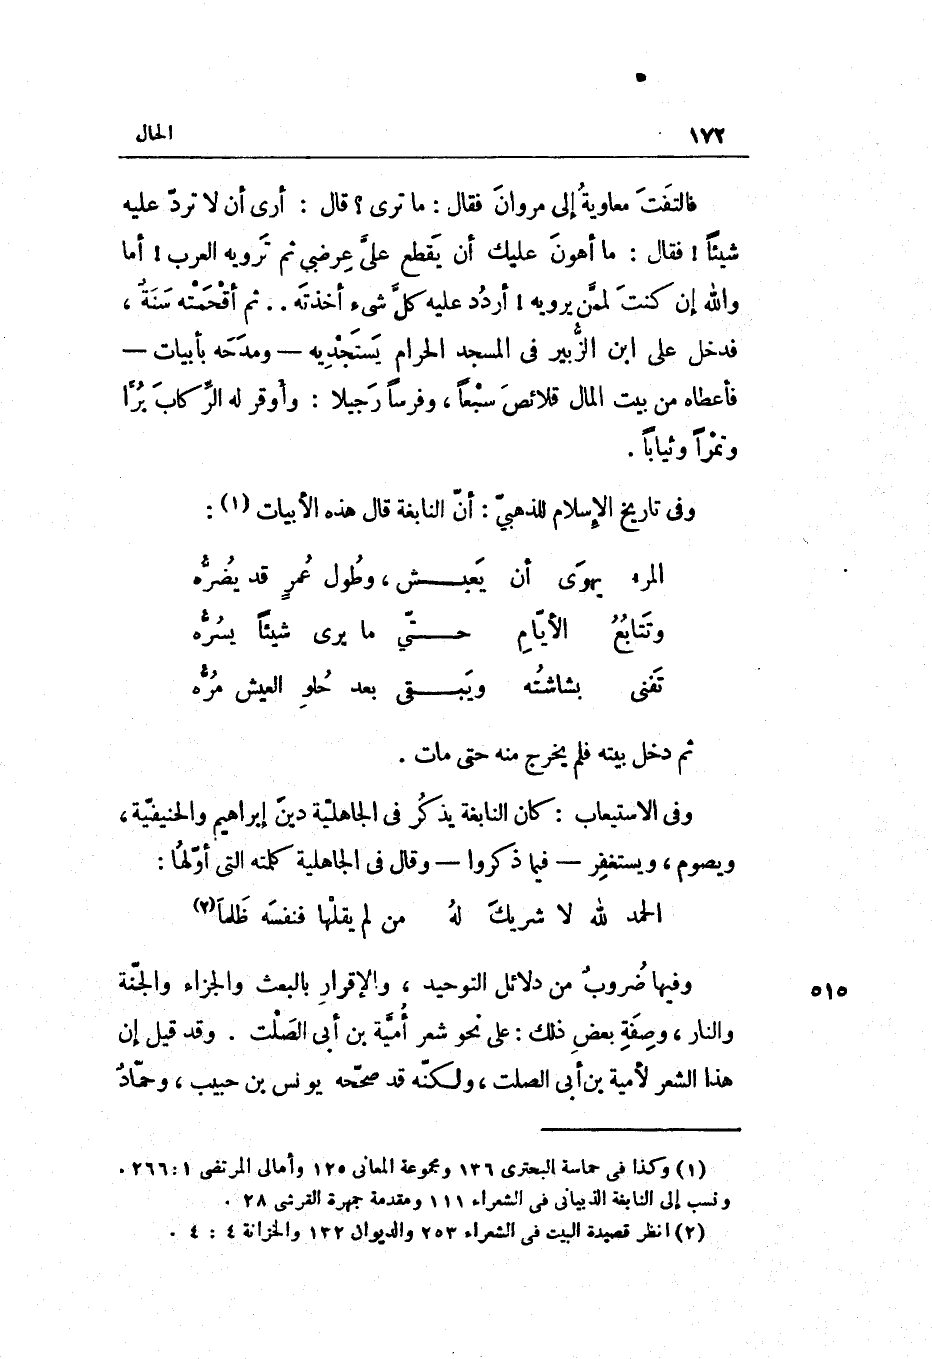 ١٧٢ الحال
فالتفَتَ معاويةُ إلى مروانَ فقال : ما ترى ؟ قال : أرى أن لا تردّ عليه
شيئاً ! فقال : ما أهونَ عليك أن يَقطع علىَّ عِرضي ثم تَرويه العرب ! أما
والله إن كنتَ لممَّن يرويه ! أردُد عليه كلَّ شىء أخذتَه .. ثم أقْحَمَتْه سَنَةٌ ،
فدخل على ابن الزُّبير فى المسجد الحرام يَستَجْدِيه — ومدَحَه بأبيات —
فأعطاه من بيت المال قلائصَ سَبْعاً ، وفرساً رَجيلا : وأوقر له الرِّكابَ بُرًّا
وتمْراً وثياباً .
وفى تاريخ الإسلام للذهبيّ : أنّ النابغة قال هذه الأبيات (١) :
المرء يهوَى أن يَعيـــش ، وطُول عُمرٍ قد يضُرُّه
وتَتَابُعُ الأيّامِ حـــتّي ما يرى شيئاً يسُرُّه
تَفنى بشاشتُه ويَبـــقى بعد حُلوِ العيش مُرُّه
ثم دخل بيته فلم يخرج منه حتى مات .
وفى الاستيعاب : كان النابغة يذكُر فى الجاهليّة دينَ إبراهيم والحنيفيّة ،
ويصوم ، ويستغفِر — فيما ذكروا — وقال فى الجاهلية كلمته التى أوّلهُا :
الحمد لله لا شريكَ لهُ من لم يقلْها فنفسَه ظَلما (٢)
وفيها ضُروبٌ من دلائل التوحيد ، والإقرارِ بالبعث والجزاء والجنّة ٥١٥
والنار ، وصِفَةِ بعضِ ذلك : على نحو شعر أُميَّة بن أبى الصَلْت . وقد قيل إن
هذا الشعر لأمية بن أبى الصلت ، ولكنّه قد صحّحه يونس بن حبيب ، وحمّادٌ
(١) وكذا فى حماسة البحترى ١٣٦ ومجموعة المعانى ١٢٥ وأمالى المرتضى ١ : ٢٦٦ .
ونسب إلى النابغة الذبيانى فى الشعراء ١١١ ومقدمة جمهرة القرشى ٢٨ .
(٢) انظر قصيدة البيت فى الشعراء ٢٥٣ والديوان ١٣٢ والخزانة ٤ : ٤ .